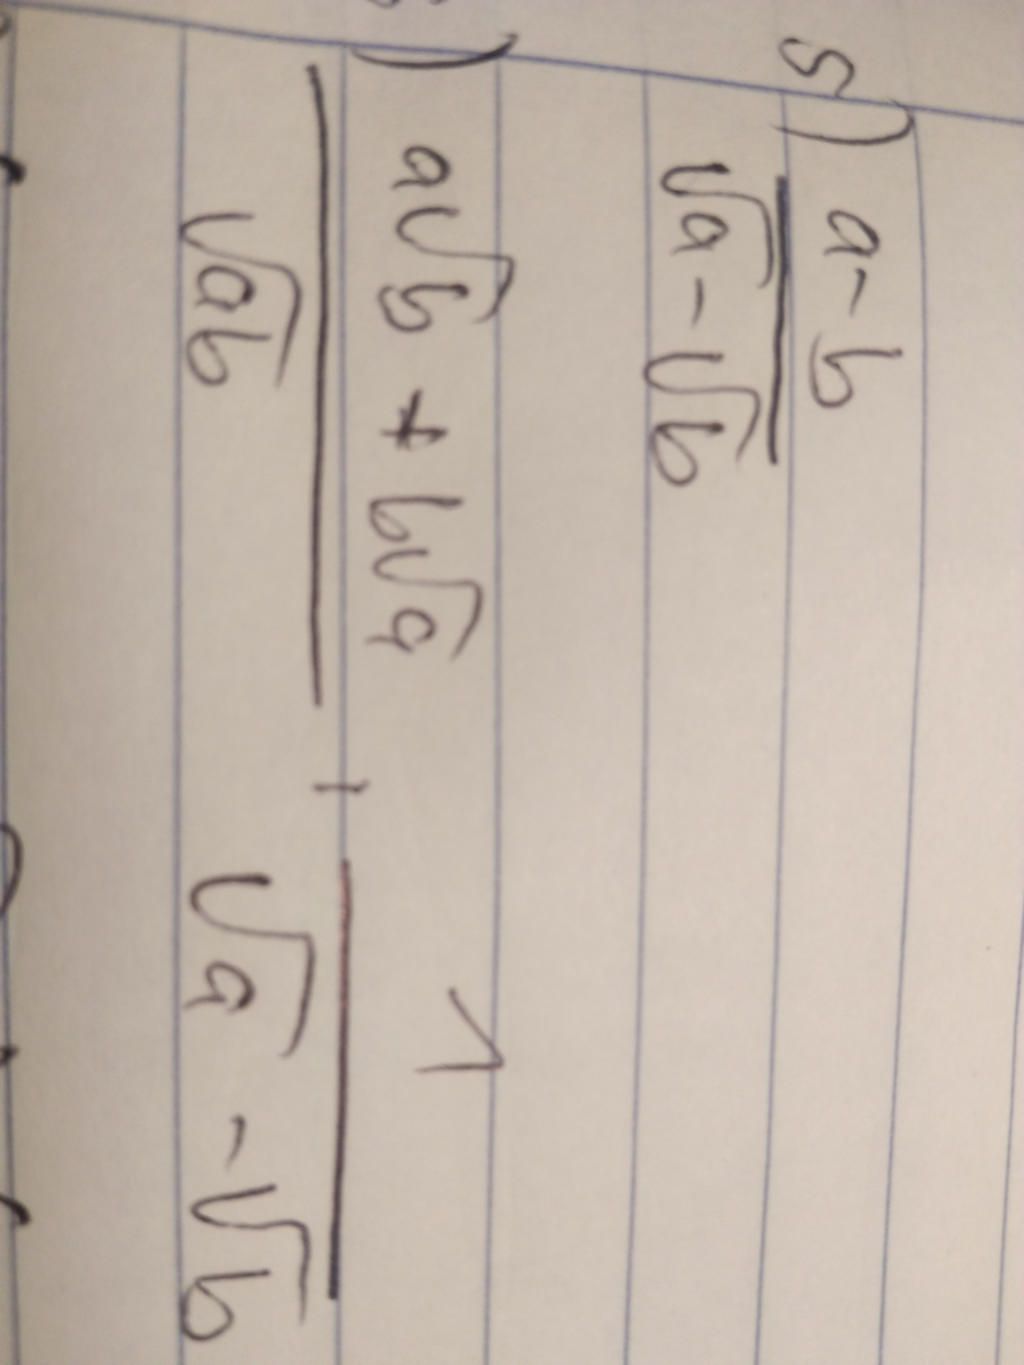 5) a-b
√a - √b
) a√b + b√a 1
√ab : √a - √b